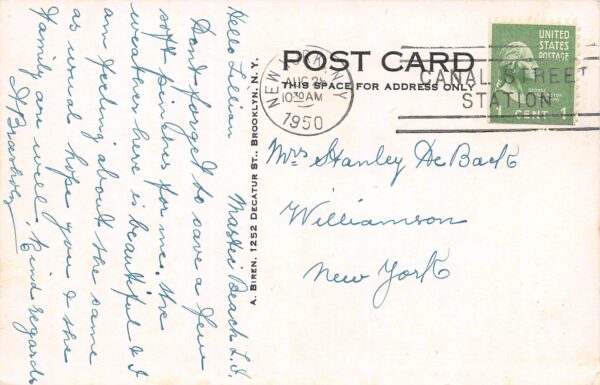 Hello Lillian Mastic Beach L.I.
Dont forget to save a few
soft pinknes for me. the
weather here is beautiful & I
am feeling about the same
as well, hope you & the
Family are well, kind regards
A. BIREN, 1252 DECATUR ST., BROOKLYN, N. Y.
POST CARD
THIS SPACE FOR ADDRESS ONLY
NEW YORK, N.Y.
AUG 24
10 30 AM
1950
CANAL STREET
STATION
UNITED
STATES
POSTAGE
1
CENT 1
Mrs Stanley DeBack
Williamson
New York